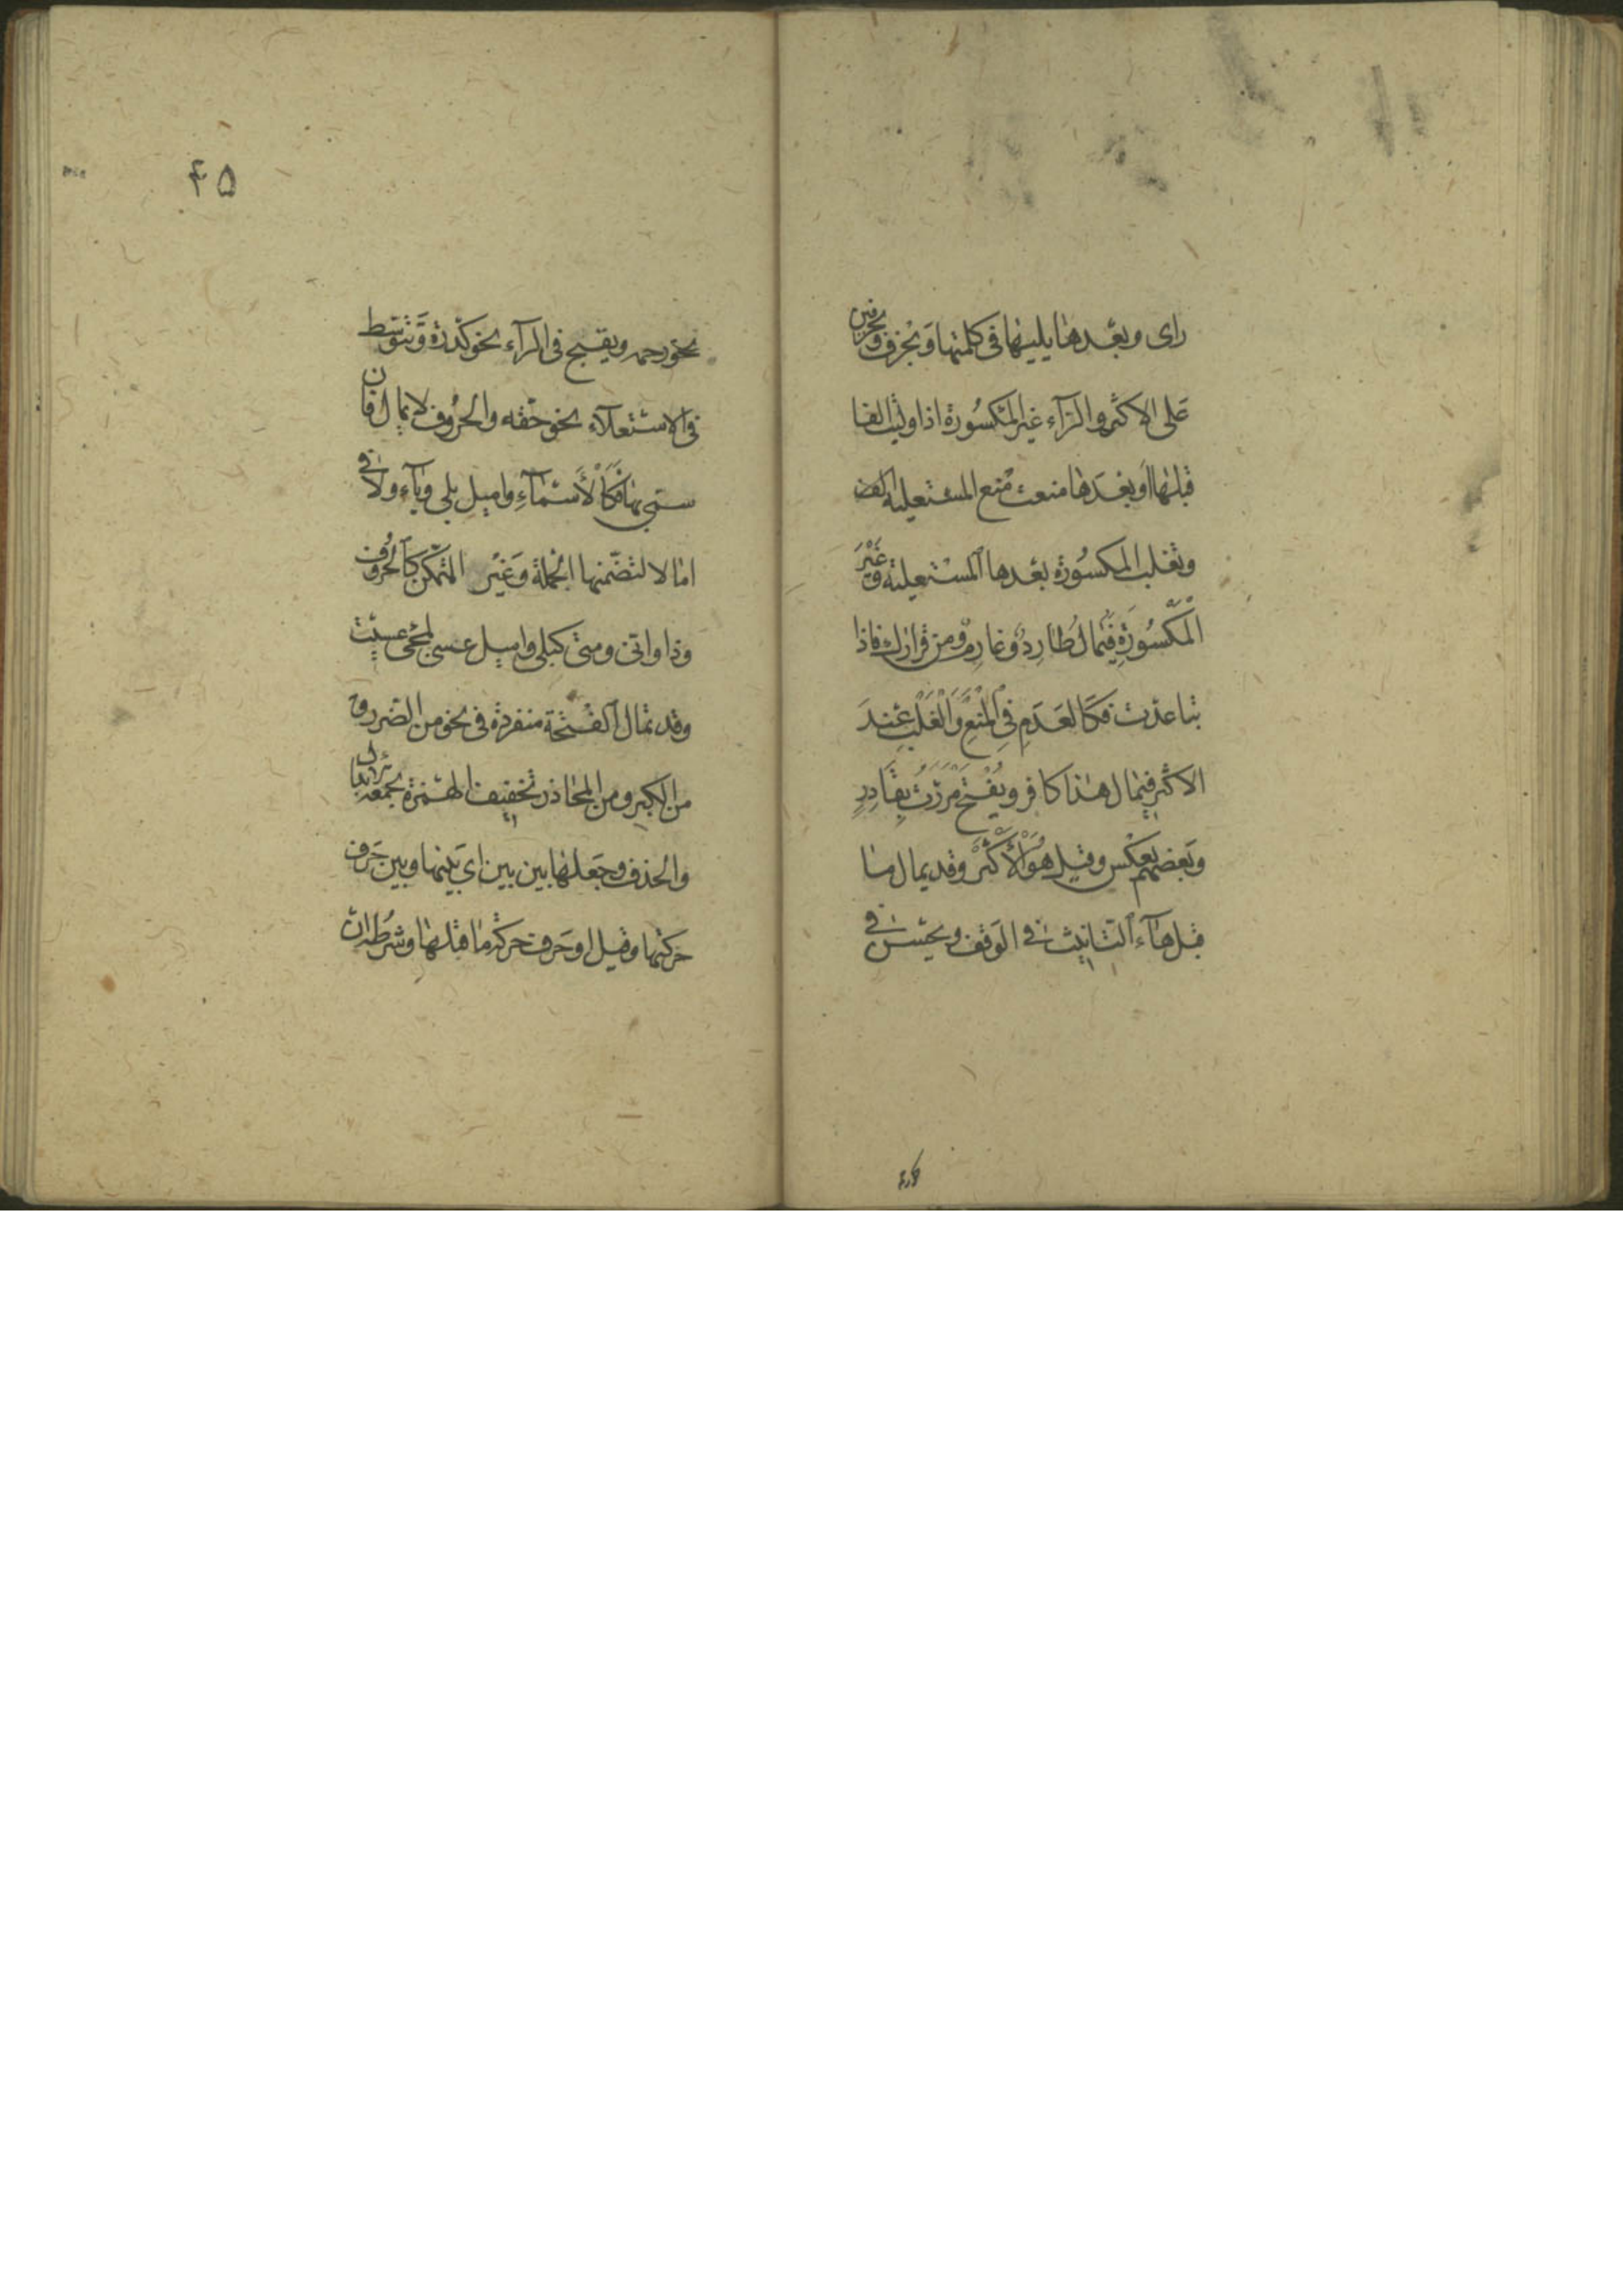 رای وبعدها يليها فی كلمتها وبحرف وبحرفين
علی الاكثر والرآء غير المكسورة اذا وليت الفا
قبلها او بعدها منعت منع المستعلية
وتغلب المكسورة بعدها المستعلية وغير
المكسورة فيمال طارد وغارم ومن قرارك فاذا
تباعدت فكالعدم فی المنع والغلب عند
الاكثر فيمال هذا كافر ويفتح مررت بقادر
وبعضهم يعكس وقيل هو الاكثر وقد يمال ما
قبل هآء التانيث فی الوقف ويحسن فی
۴۵
نحو رحمه ويقبح فی الرآء نحو كدرة وتتوسط
فی الاستعلآء نحو حقه والحروف لا يمال فان
سمی بها فكالأسمآء واميل بلی ويآء ولا فی
امالا لتضمنها الجملة وغير المتمكن كالحروف
وذا وانی ومتی كبلی واميل عسی لمجئ عسيت
وقد تمال الفتحة منفردة فی نحو من الضرر و
من الكبر ومن المحاذر تخفيف الهمزة يجمعه الابدال
والحذف وجعلها بين بين ای بينها وبين حرف
حركتها وقيل او حرف حركة ما قبلها وشرطه ان